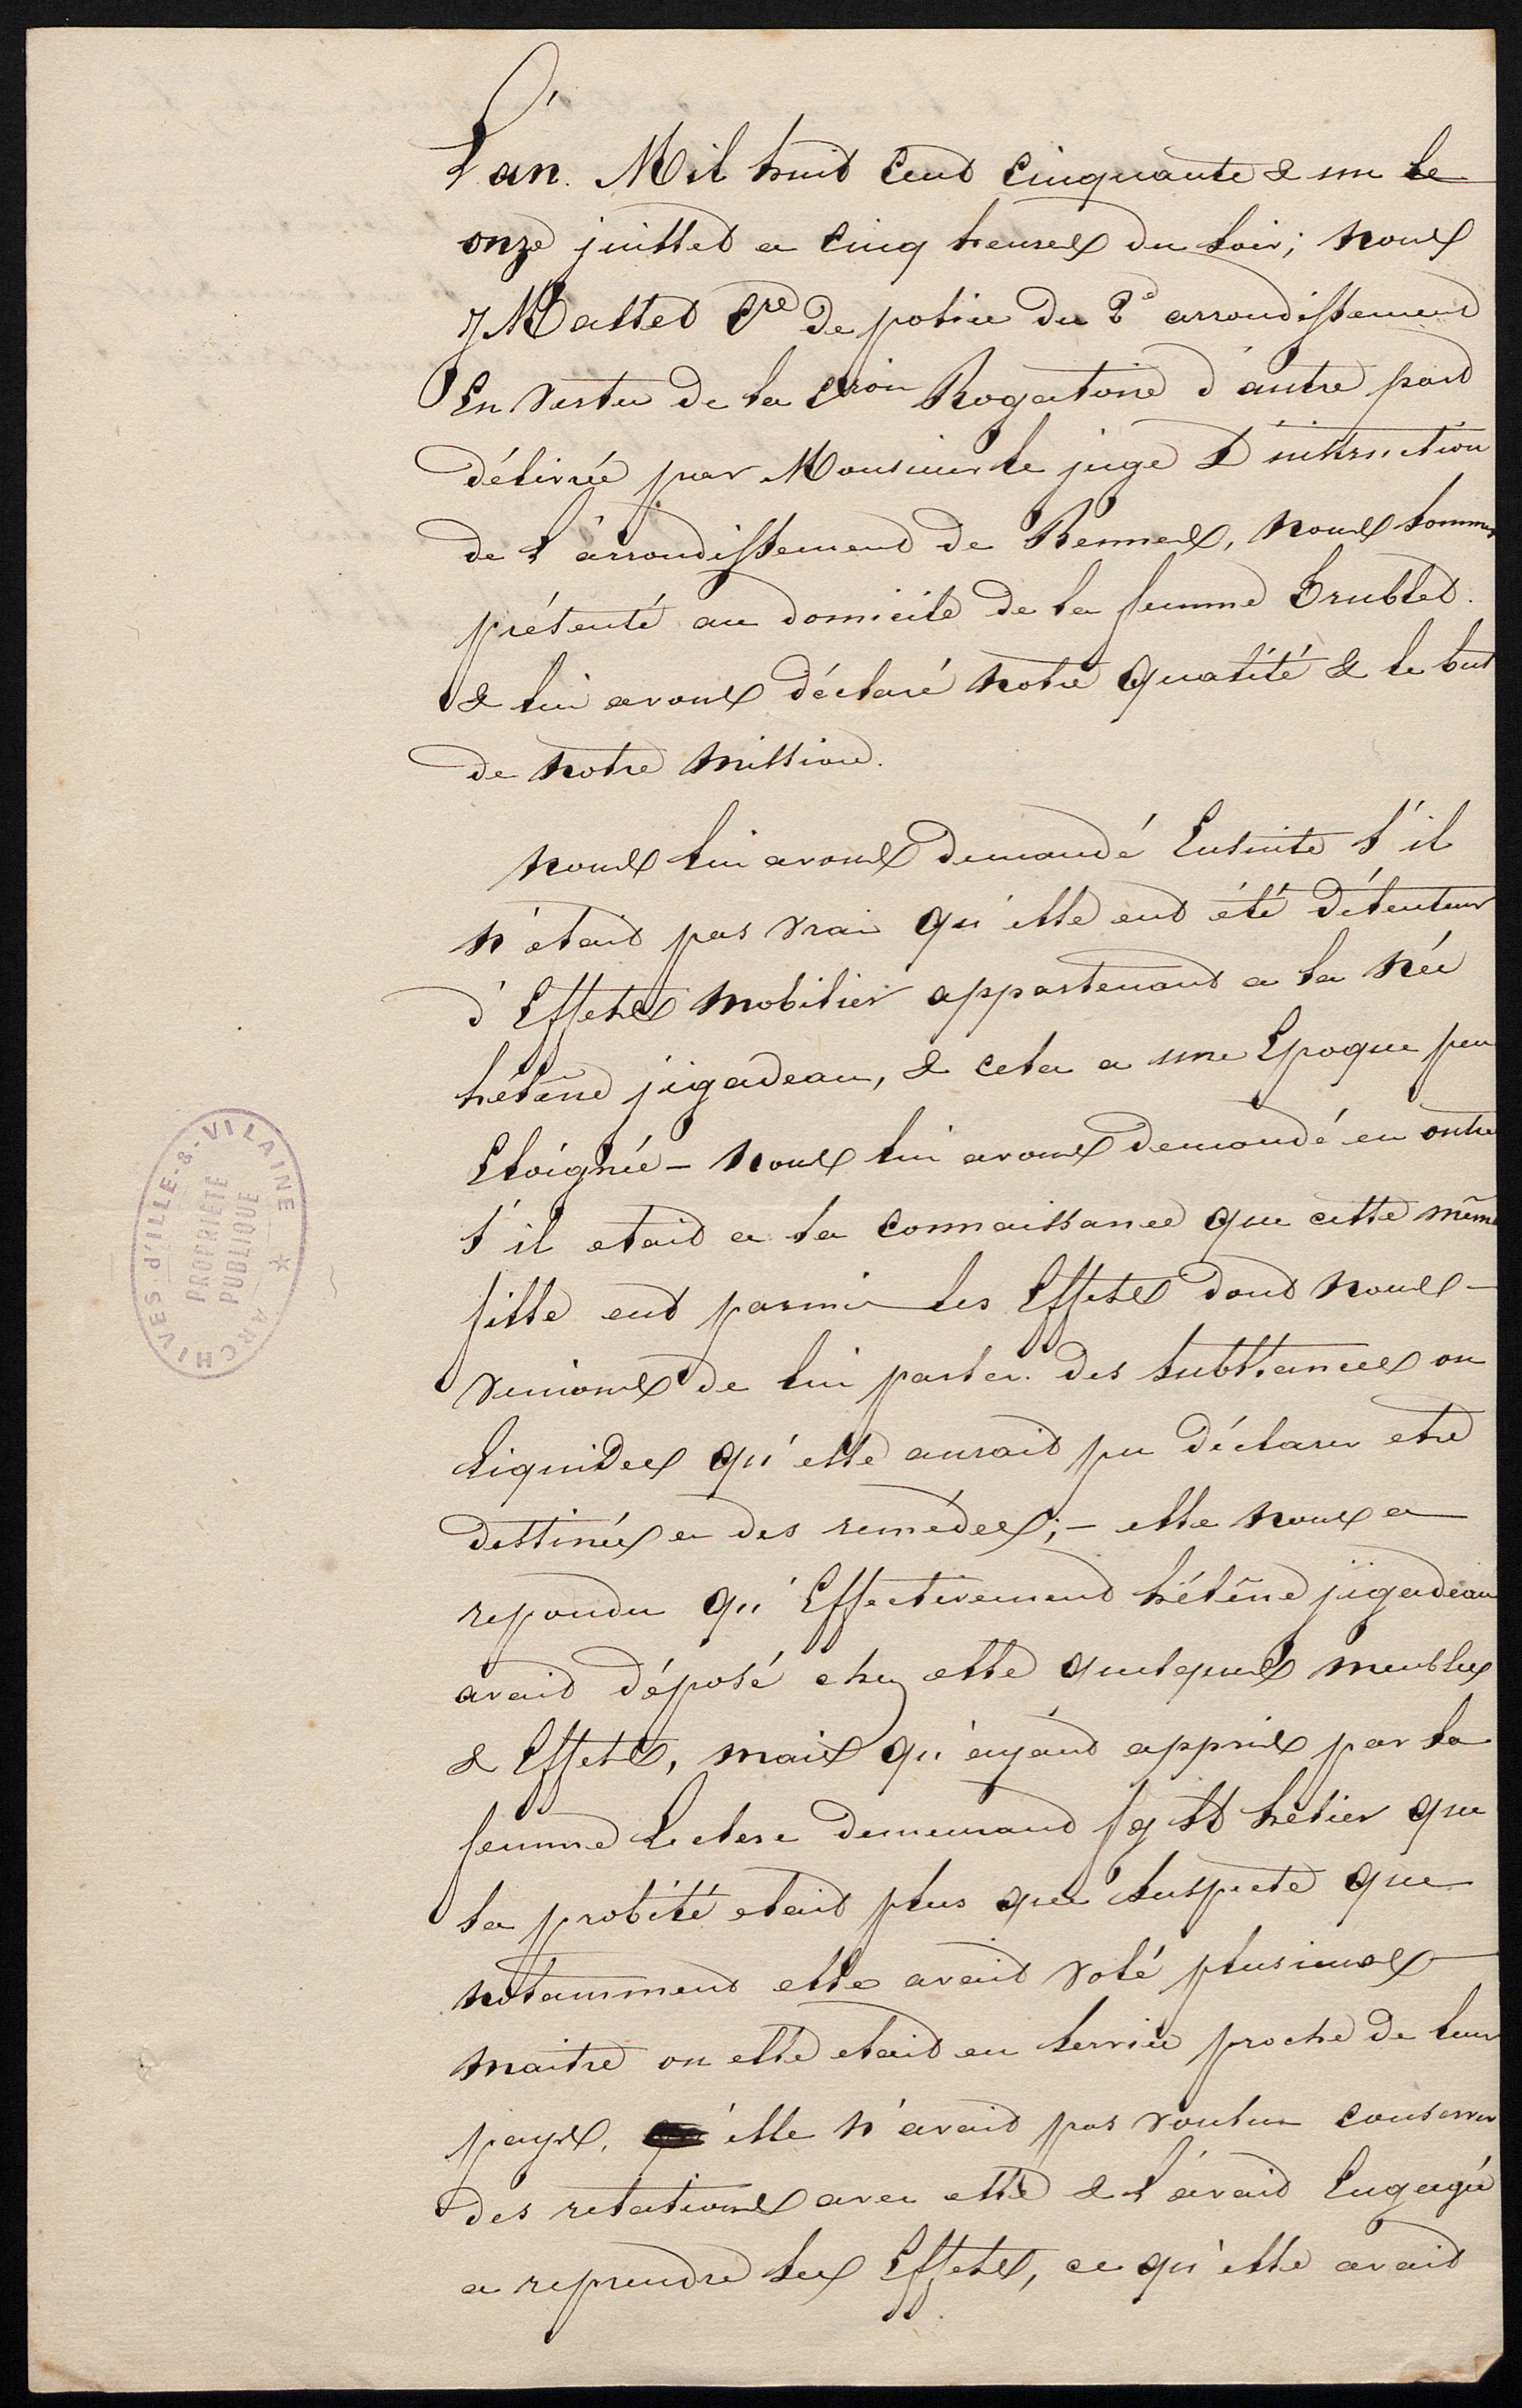 L'an. Mil huit Cent Cinquante & un le
onze juillet a Cinq heures du soir; nous
J Mallet Cre de police du 2e arrondissement
En Vertu de la Cion Rogatoire d'autre part
délivrée par Monsieur le juge D'instruction
de L'arrondissement de Rennes, nous sommes
présenté au domicile de la femme Trublet.
& lui avons déclaré notre qualité & le but
de notre mission.
nous lui avons demandé Ensuite s'il
n'était pas vrai qu'elle eut été détenteur
d'Effets mobilier appartenant a la née
héléne jigadeau, & cela a une Epoque peu
Eloignée - nous lui avons demandé en outre
s'il etait a sa connaissance que cette même
fille eut parmi les Effets dont nous -
venions de lui parler. des substances ou
Liquides qu'elle aurait pu déclarer etre
destinés a des remédes; - elle nous a
repondu qu'Effectivement héléne jigadeau
avait déposé chez elle quelques meubles
& Effets, mais qu'ayant appris par la
femme Leclerc demeurant fg St helier que
sa probité etait plus que suspecte que
notamment elle avait volé plusieurs
maitre ou elle etait en service proche de leur
pays, elle n'avait pas voulu conserver
des relations avec elle & l'avait Engagée
a reprendre ses Effets, ce qu'elle avait
ARCHIVES d'ILLE-&-VILAINE
PROPRIÉTÉ
PUBLIQUE